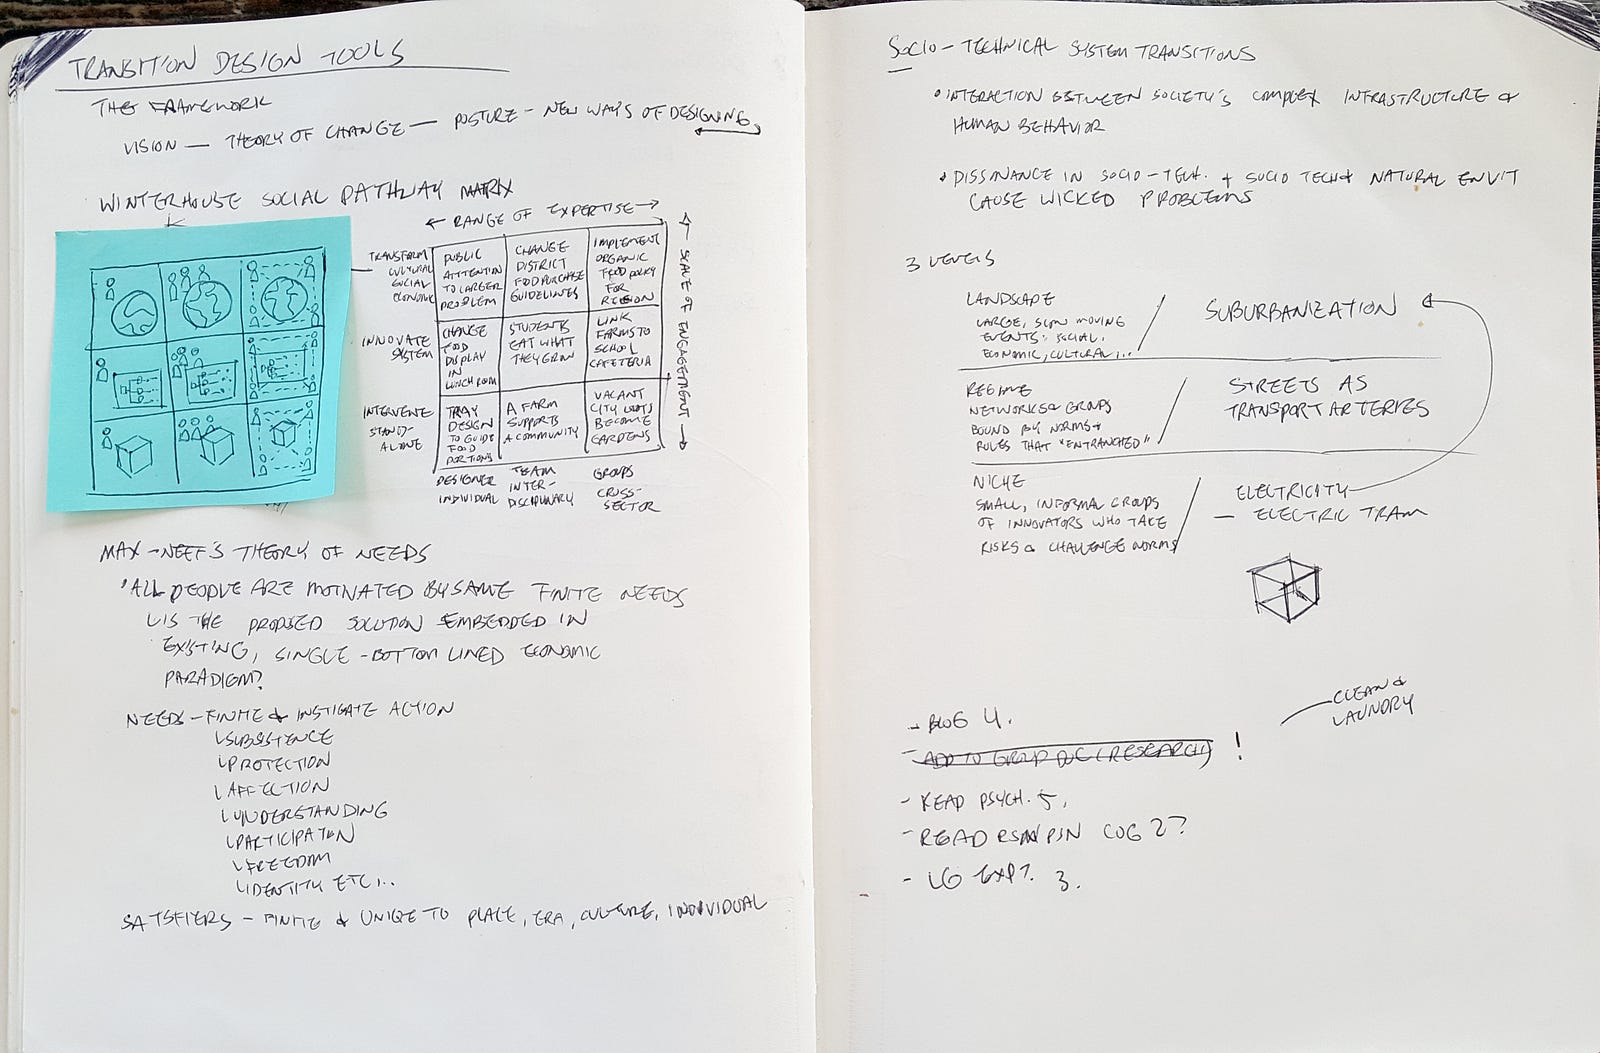 TRANSITION DESIGN TOOLS
THE FRAMEWORK
VISION — THEORY OF CHANGE — POSTURE — NEW WAYS OF DESIGNING
WINTERHOUSE SOCIAL PATHWAY MATRIX
← RANGE OF EXPERTISE →
← SCALE OF ENGAGEMENT →
TRANSFORM
CULTURAL
SOCIAL
ECONOMIC
PUBLIC
ATTENTION
TO LARGER
PROBLEM
CHANGE
DISTRICT
FOOD PURCHASE
GUIDELINES
IMPLEMENT
ORGANIC
FOOD POLICY
FOR
REGION
INNOVATE
SYSTEM
CHANGE
FOOD
DISPLAY
IN
LUNCH ROOM
STUDENTS
EAT WHAT
THEY GROW
LINK
FARMS TO
SCHOOL
CAFETERIA
INTERVENE
STAND-
ALONE
TRAY
DESIGN
TO GUIDE
FOOD
PORTIONS
A FARM
SUPPORTS
A COMMUNITY
VACANT
CITY LOTS
BECOME
GARDENS
DESIGNER
INDIVIDUAL
TEAM
INTER-
DISCIPLINARY
GROUPS
CROSS-
SECTOR
MAX-NEEF'S THEORY OF NEEDS
• ALL PEOPLE ARE MOTIVATED BY SAME FINITE NEEDS
IS THE PROPOSED SOLUTION EMBEDDED IN
EXISTING, SINGLE-BOTTOM LINED ECONOMIC
PARADIGM?
NEEDS - FINITE & INSTIGATE ACTION
SUBSISTENCE
PROTECTION
AFFECTION
UNDERSTANDING
PARTICIPATION
FREEDOM
IDENTITY ETC...
SATSFIERS - FINITE & UNIQE TO PLACE, ERA, CULTURE, INDIVIDUAL
SOCIO-TECHNICAL SYSTEM TRANSITIONS
• INTERACTION BETWEEN SOCIETY'S COMPLEX INFRASTRUCTURE &
HUMAN BEHAVIOR
• DISSINANCE IN SOCIO-TECH. + SOCIO TECH & NATURAL ENVIT
CAUSE WICKED PROBLEMS
3 LEVELS
LANDSCAPE
LARGE, SLOW MOVING
EVENTS: SOCIAL,
ECONOMIC, CULTURAL,...
SUBURBANIZATION
REGIME
NETWORKS & GROUPS
BOUND BY NORMS &
RULES THAT "ENTRANCHED"
STREETS AS
TRANSPORT ARTERIES
NICHE
SMALL, INFORMAL GROUPS
OF INNOVATORS WHO TAKE
RISKS & CHALLENGE NORMS
ELECTRICITY
— ELECTRIC TRAM
CLEAN &
LAUNDRY
- BLOG 4.
- ADD TO GROUP DOC (RESEARCH) !
- READ PSYCH. 5.
- READ COG 2?
- 3.